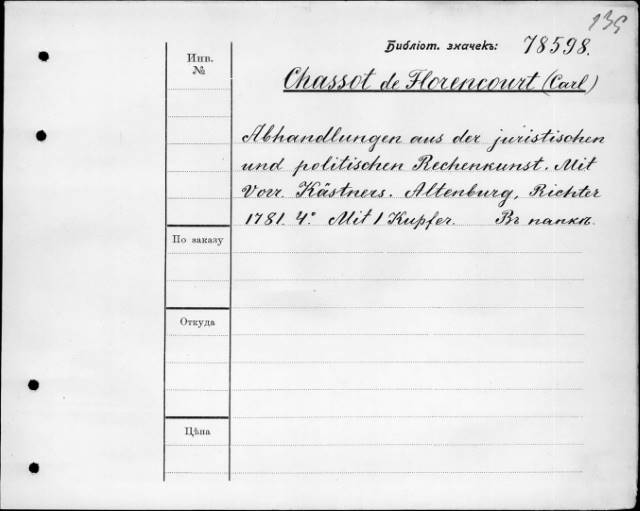 135
Библіот. значекъ: 78598.
Инв.
№
Chassot de Florencourt (Carl)
Abhandlungen aus der juristischen
und politischen Rechenkunst. Mit
Vorr. Kästners. Altenburg, Richter
1781. 4.° Mit 1 Kupfer. Въ папкѣ.
По заказу
Откуда
Цѣна